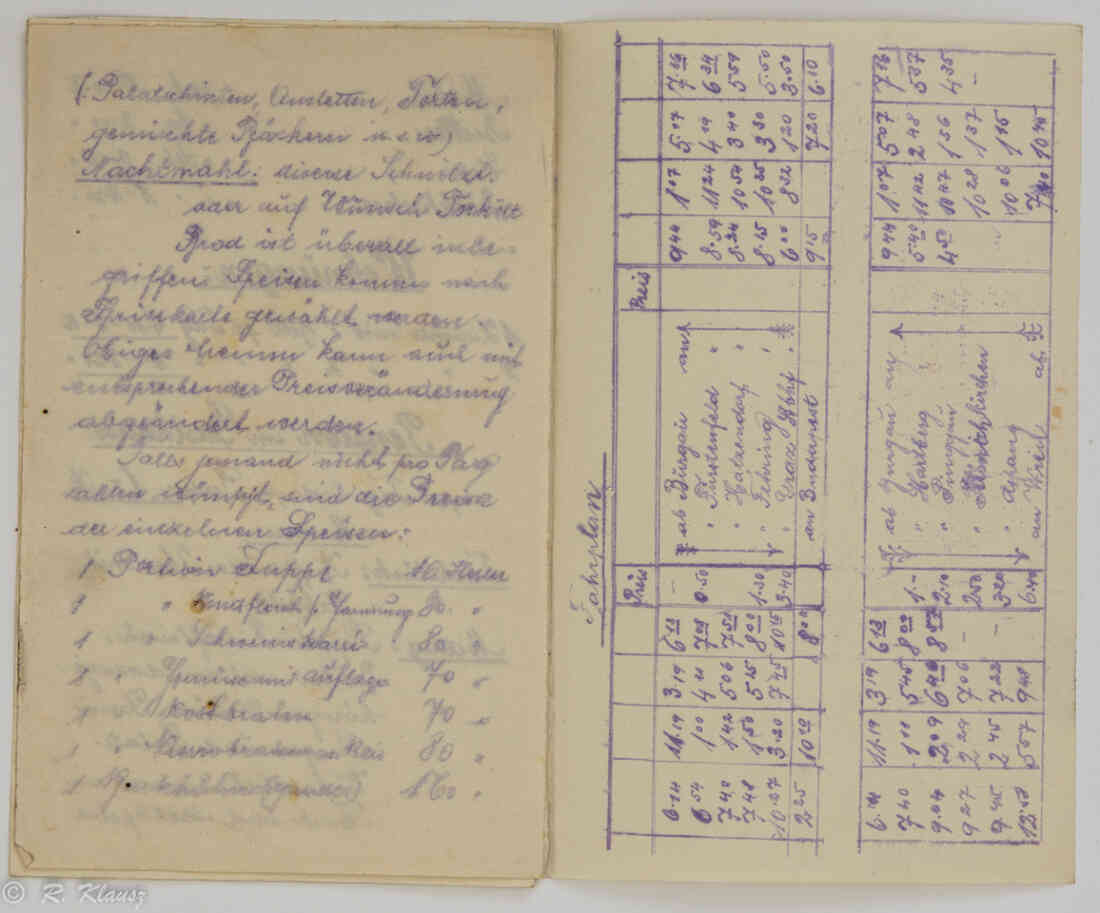 (: Palatschinken, Omletten, Torten,
gemischte Bäckerei u.s.w)
Nachtmahl: diverse Schnitzel
oder auf Wunsch
Brod ist überall inbe-
griffen. Speisen können nach
Speiskarte gewählt werden.
Obiges kann auch mit
entsprechender Preisveränderung
abgeändert werden.
Falls jemand nicht pro Tag
zahlen wünscht, sind die Preise
der einzelnen Speisen:
1 Portion Suppe Heller
1 " Rindfleisch 80 "
1 Schweinskarré 80 "
1 " Gemüse mit Auflage 70 "
1 Rostbraten 70 "
1 80 "
1 160 "
Fahrplan
Preis Preis
6.54 11.19 3.19 6.13 — ab Burgau an 9.44 1.07 5.07 7.19
6.54 1.00 4.20 7.08 0.50 " Fürstenfeld " 8.59 11.24 4.19 6.34
7.40 1.42 5.06 7.54 " Hatzendorf " 8.24 10.54 3.40 5.59
7.48 1.50 5.15 8.00 1.30 " Fehring " 8.15 10.25 3.30 5.50
10.27 3.20 7.45 10.15 3.40 " Graz Hbhf. " 6.00 8.32 1.20 3.50
2.25 10.20 8.00 an Budapest 9.15 7.20 6.10
6.14 11.19 3.19 6.13 ab Burgau an 9.44 1.07 5.07 7.16
7.40 1.00 5.45 8.00 1.- " Hartberg 5.40 11.42 2.48 5.37
9.04 2.09 6.40 8.57 2.10 " 4.50 10.47 1.56 4.35
9.27 2.29 7.06 — 2.50 " Mönichkirchen 10.28 1.37 —
9.45 2.45 7.22 — 3.20 " Aspang 10.06 1.15
12.58 5.07 9.48 6.40 an Wien ab 7.40 10.45
© R. Klausz